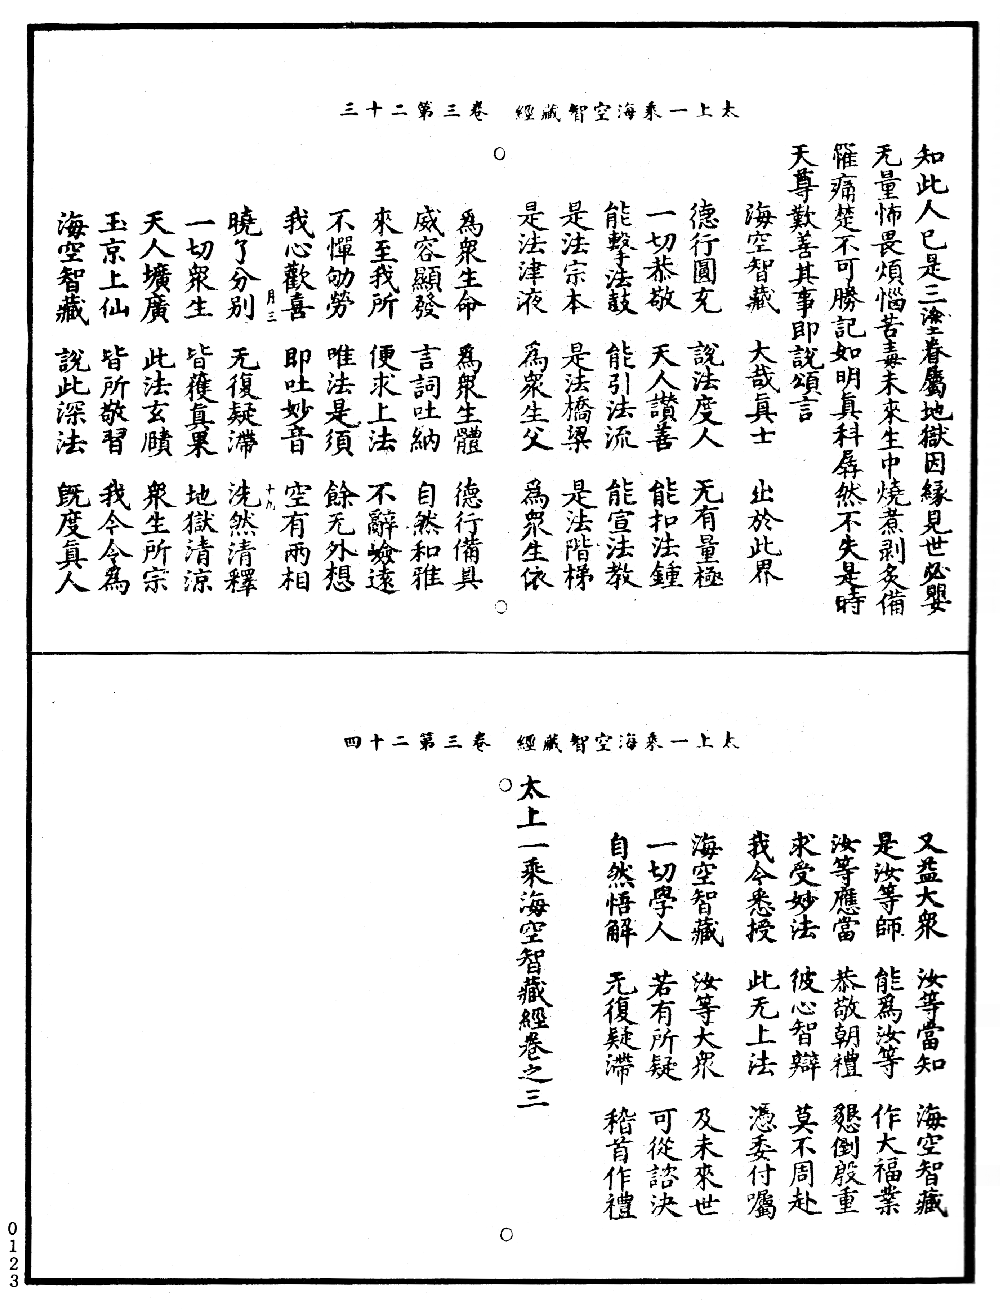 太上一乘海空智藏經　卷三第二十三
知此人已是三塗眷屬地獄因緣見世必嬰
无量怖畏煩惱苦毒未來生中燒煮剥炙備
罹痛楚不可勝記如明真科孱然不失是時
天尊歎善其事即說頌言
海空智藏　大哉真士　出於此界
德行圓充　說法度人　无有量極
一切恭敬　天人讃善　能扣法鍾
能擊法鼓　能引法流　能宣法教
是法宗本　是法橋梁　是法階梯
是法津液　為衆生父　為衆生依
為衆生命　為衆生體　德行備具
威容顯發　言詞吐納　自然和雅
來至我所　便求上法　不辭嶮遠
不憚劬勞　唯法是須　餘无外想
我心歡喜　即吐妙音　空有兩相
月三　十九
曉了分别　无復疑滯　洗然清釋
一切衆生　皆獲真果　地獄清涼
天人壙廣　此法玄賾　衆生所宗
玉京上仙　皆所敬習　我今令為
海空智藏　說此深法　旣度真人
太上一乘海空智藏經　卷三第二十四
又益大衆　汝等當知　海空智藏
是汝等師　能為汝等　作大福業
汝等應當　恭敬朝禮　懇倒殷重
求受妙法　彼心智辯　莫不周赴
我今悉授　此无上法　憑委付囑
海空智藏　汝等大衆　及未來世
一切學人　若有所疑　可從諮決
自然悟解　无復疑滯　稽首作禮
太上一乘海空智藏經卷之三
0123